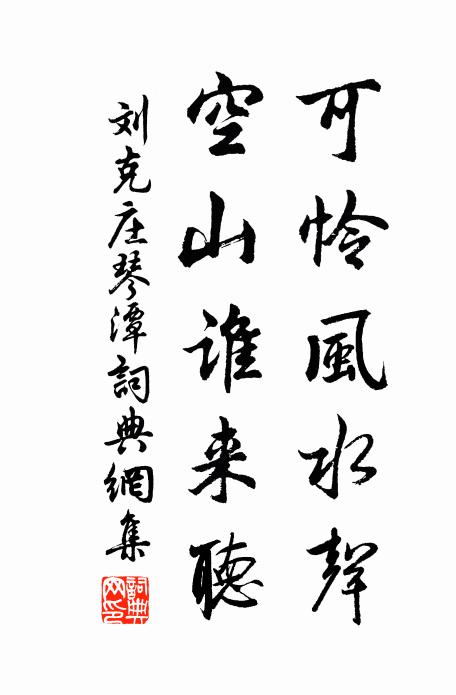 可怜風水聲
空山誰来聽
刘克庄琴潭詞典網集
詞典网印